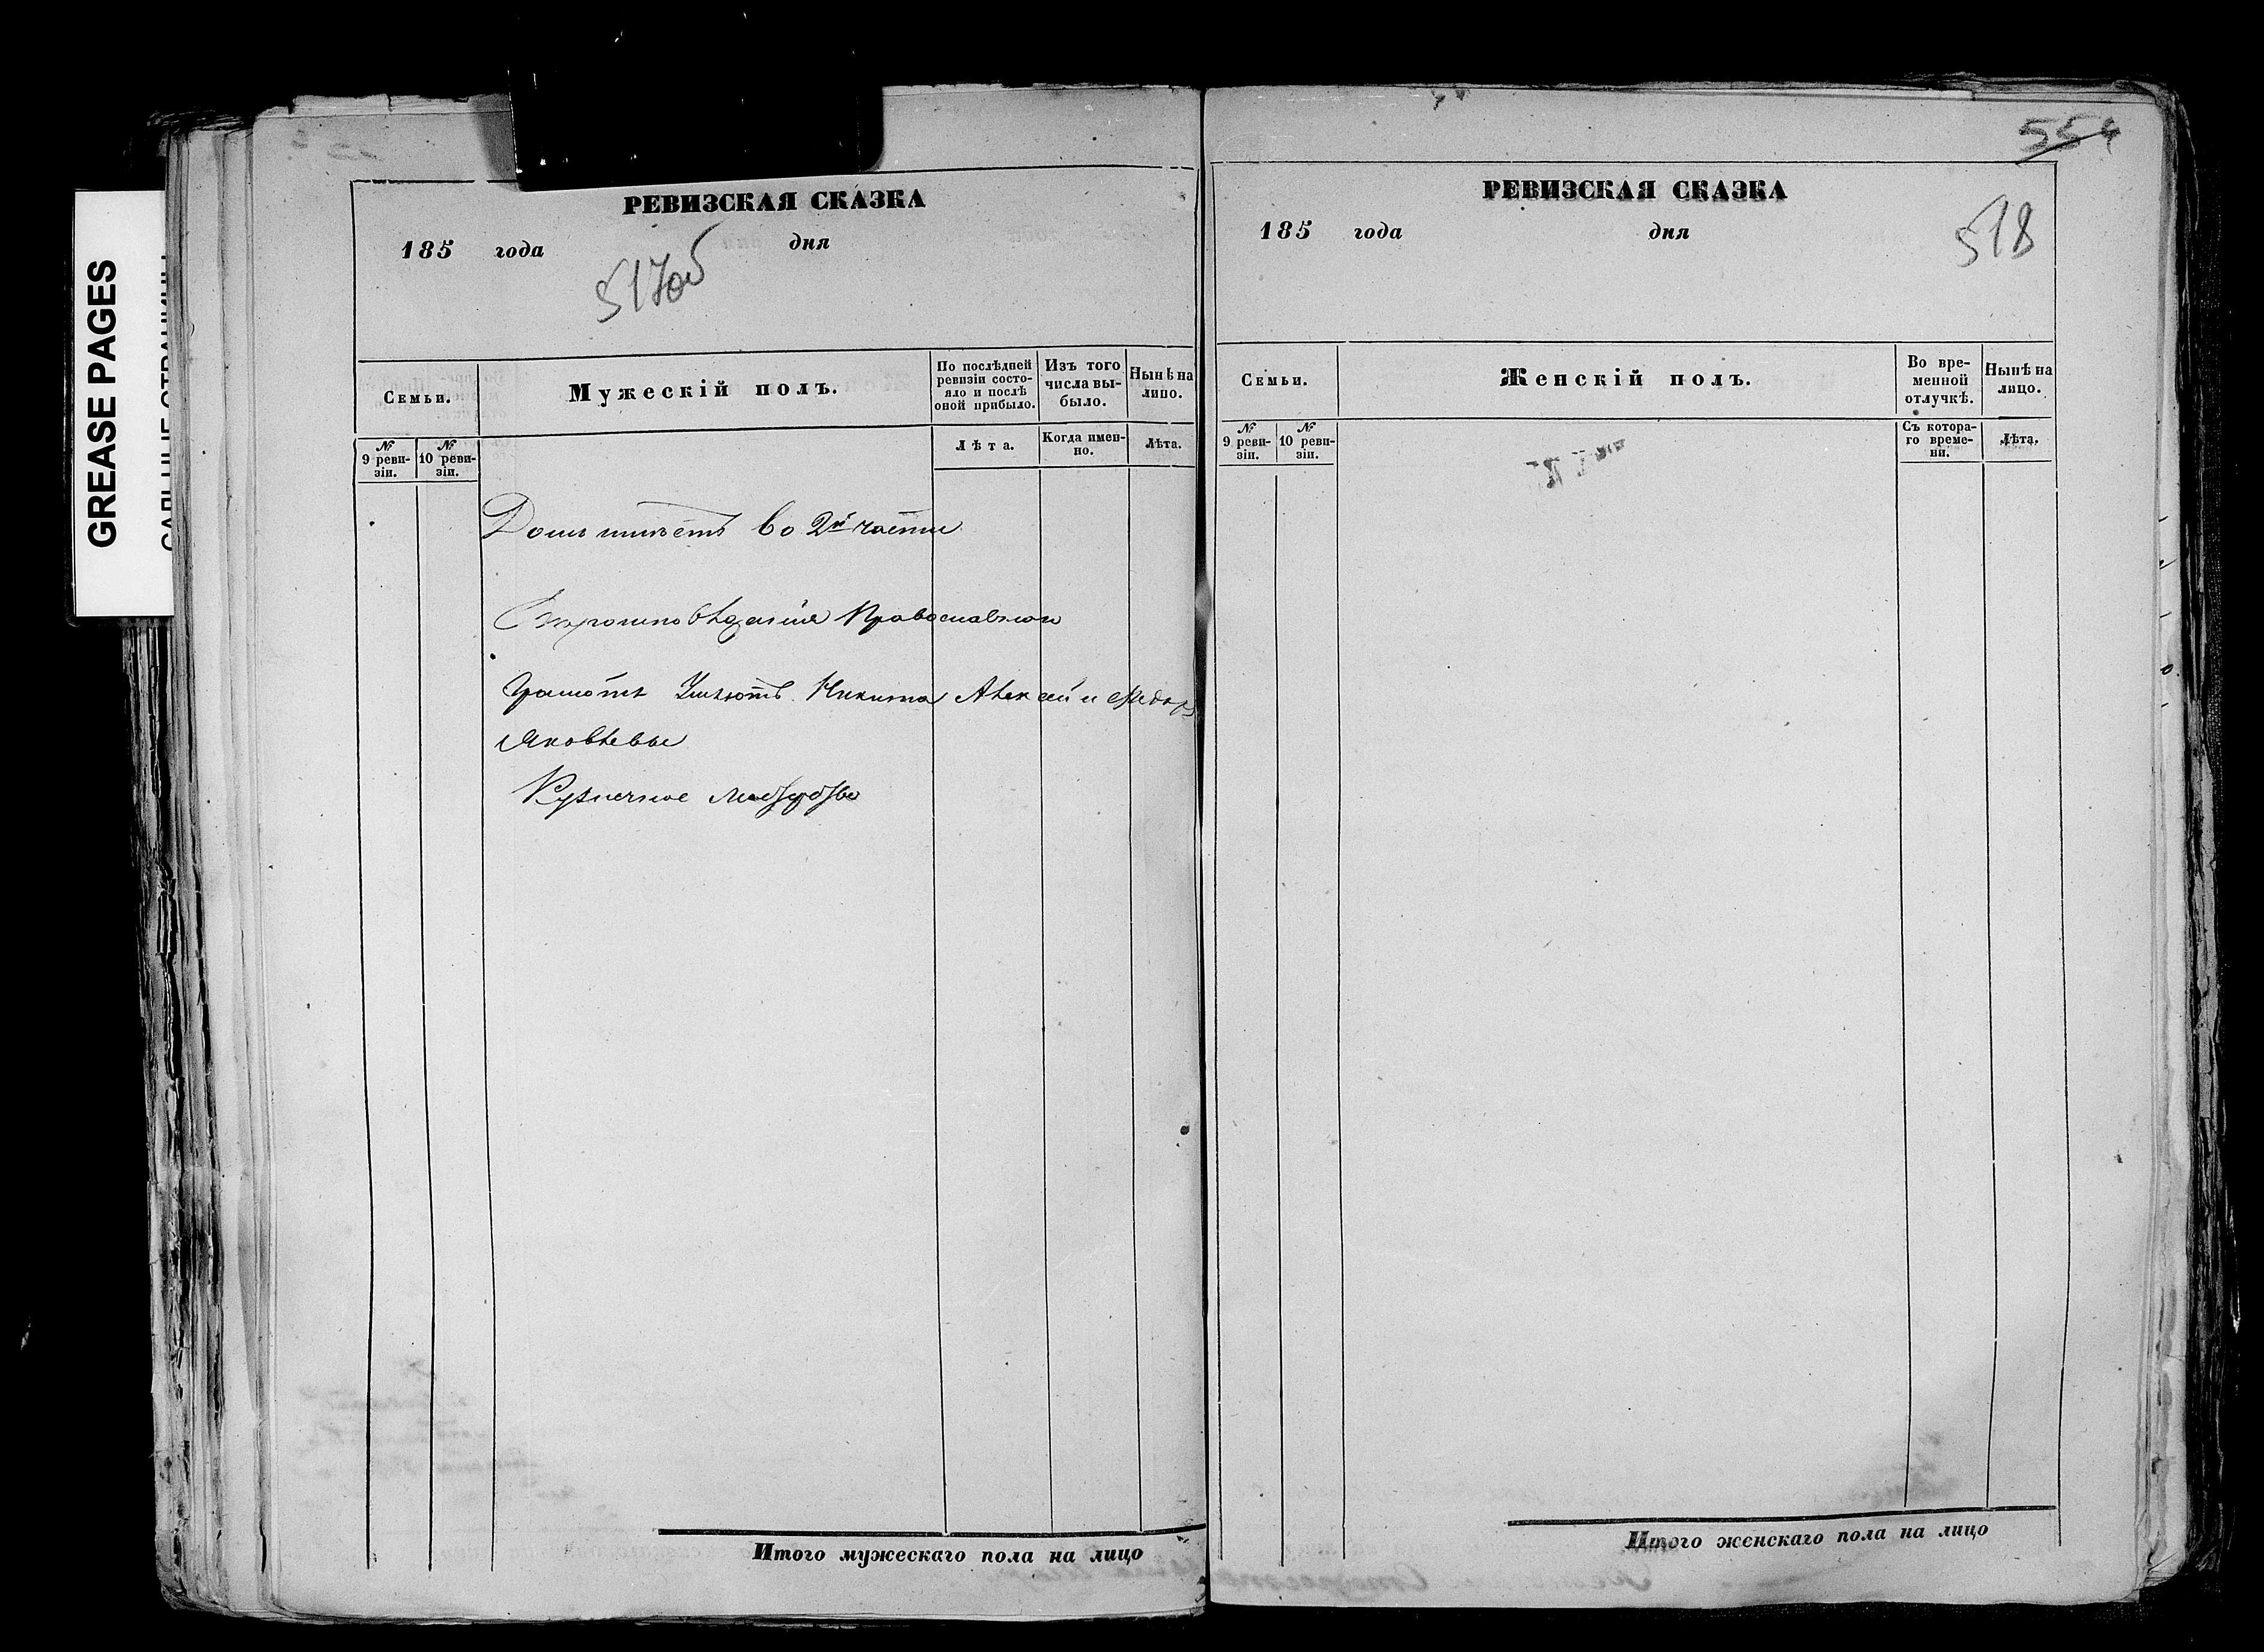 GREASE PAGES
РЕВИЗСКАЯ СКАЗКА
185 года дня
517об
Семьи.
Мужескій полъ.
По послѣдней ревизіи состо-
яло и послѣ оной прибыло.
Изъ того числа вы-
было.
Нынѣ на лицо.
№ 9 реви-
зіи.
№ 10 реви-
зіи.
Лѣта.
Когда имен-
но.
Лѣта.
Домъ имѣетъ во 2й части
Вѣроисповѣданія Православнаго
Грамотѣ Умѣютъ Никита Алексѣй и Ѳедоръ
Яковлевы
Кузнечное мастерство
Итого мужескаго пола на лицо
554
РЕВИЗСКАЯ СКАЗКА
185 года дня
518
Семьи.
Женскій полъ.
Во вре-
менной
отлучкѣ.
Нынѣ на
лицо.
№ 9 реви-
зіи.
№ 10 реви-
зіи.
Съ котора-
го време-
ни.
Лѣта.
Итого женскаго пола на лицо